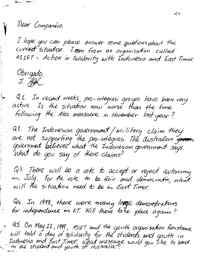 Dear Companheiro,
I hope you can please answer some questions about the
current situation. I am from an organisation called
ASIET - Action in Solidarity with Indonesia and East Timor.
Obrigado
Q1. In recent weeks, pro-integrasi groups have been very
active. Is the situation now worse than the time
following the Alas massacre in November last year?
Q2. The Indonesian government / military claim they
are not supporting the pro-integrasi. The Australian
government believes what the Indonesian government says.
What do you say of these claims?
Q3. There will be a vote to accept or reject autonomy
in July. For the vote to be fair and democratic, what
will the situation need to be in East Timor.
Q4. In 1998, there were many large demonstrations
for independence in ET. Will these take place again?
Q5. On May 22, 1999, ASIET and the youth organisation Resistance
will hold a day of solidarity for the students and youth in
Indonesia and East Timor. What message would you like to send
to the students and youth of Australia?